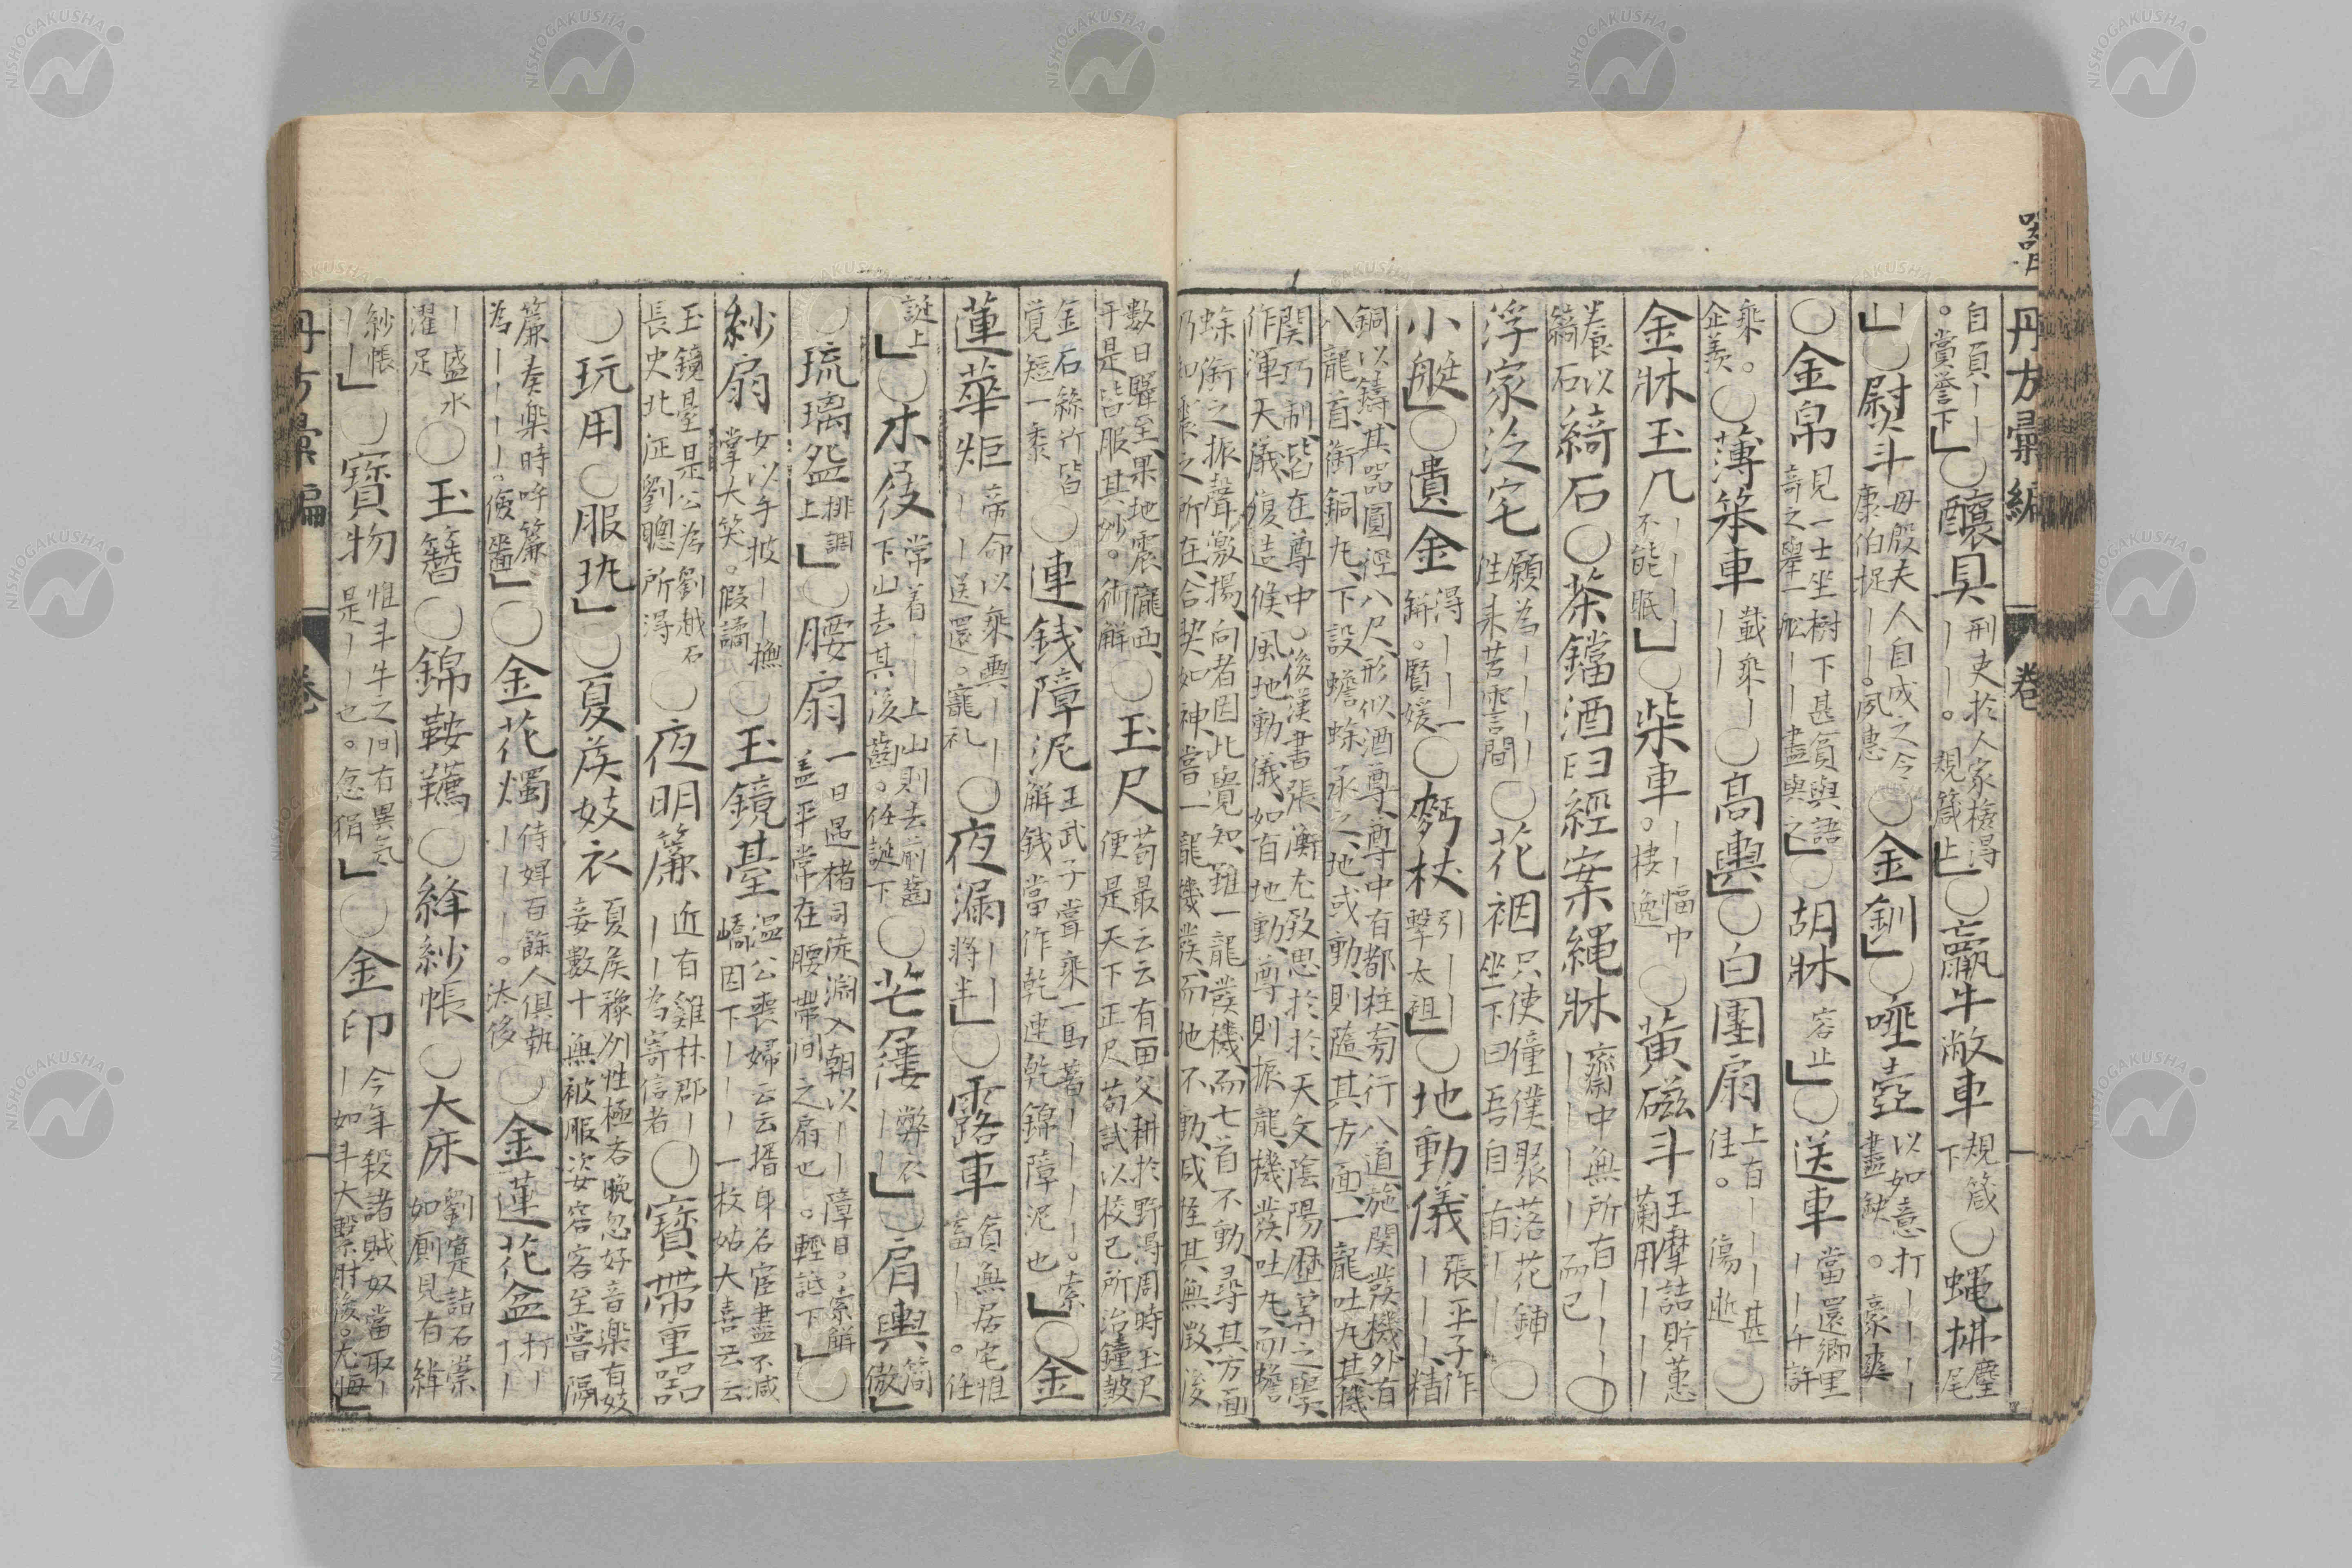 器
丹方彙編 卷
自負｜｜○釀具刑吏於人家檢得｜｜。規箴上」○羸牛敝車規箴下○蠅拂麈尾
。賞誉下」
｜｜」○熨斗母殷夫人自成之令康伯捉｜｜。夙惠○金釧」○唾壺以如意打｜｜｜盡缺。豪爽
○金帛見一士坐樹下甚貧與語奇之舉一舩｜｜盡與之」○胡牀容止」○送車當還鄉里｜｜千許
乘。企羨○薄笨車載乘｜｜｜○高輿」○白團扇上有｜｜｜甚佳。傷逝○
金牀玉几｜｜｜｜不能眠」○柴車｜｜幅巾。棲逸○黃磁斗王摩詰貯蕙蘭用｜｜｜
養以綺石綺石○茶鐺酒臼經案繩牀齋中無所有｜｜｜｜｜｜而已○
浮家泛宅願為｜｜｜｜往来苕霅間○花裀只使僮僕聚落花鋪坐下曰吾自有｜｜○
小艇」○遺金得｜｜一餅。賢媛○麪杖引｜｜擊太祖」○地動儀張平子作｜｜｜、精
銅以鑄、其器圓徑八尺、形似酒尊、尊中有都柱、旁行八道、施関發機、外有
八龍、首銜銅丸、下設蟾蜍承之、地或動、則隨其方面、一龍吐丸、其機
関巧制、皆在尊中。後漢書張衡尤致思於於天文陰陽歴筭之㮣、
作渾天儀、復造候風地動儀、如有地動、尊則振龍、機發吐丸、而蟾
蜍銜之、振聲激揚、向者因此覺知、雖一龍發機、而七首不動、尋其方面、
乃知震之所在、合契如神、嘗一龍機發、而地不動、咸怪其無徵、後
數日驛至、果地震隴西、於是皆服其妙。術解○玉尺荀最云云有田父耕於野得周時玉尺便是天下正尺荀試以校已所治鐘鼓
金石絲竹皆覚短一黍○連銭障泥王武子嘗乘一馬著｜｜｜｜。術解銭當作乾連乾錦障泥也」○金
蓮華炬帝命以乘輿｜｜｜送還。寵礼○夜漏｜｜將半」○露車貧無居宅惟畜｜｜。任
誕上」○木屐常着｜｜上山則去前齒下山去其後齒。任誕下○芒屩弊衣｜｜」○肩輿簡傲」
○琉璃盌排調上」○腰扇一日遇褚司徒淵入朝以｜｜障日。索解蓋平常在腰帶間之扇也。輕詆下」○
紗扇女以手披｜｜撫掌大笑。假譎○玉鏡臺温公喪婦云云壻身名宦盡不減嶠因下｜｜｜一枚姑大喜云云
玉鏡臺是公為劉越石長史北征劉聰所得○夜明簾近有雞林郡｜｜｜為寄信者○寶帶重器
○玩用○服玩」○夏侯妓衣夏侯豫州性極吝晚忽好音樂有妓妾數十無被服姿容客至嘗隔
簾奏樂時呼簾為｜｜｜｜。儉嗇」○金花燭侍婢百餘人俱執｜｜｜。汰侈○金蓮花盆打｜｜｜｜
｜盛水濯足○玉簪○錦鞍韉○絳紗帳○大床劉寔詣石崇如厠見有絳
紗帳｜｜」○寶物惟斗牛之間有異気是｜｜也。忿狷」○金印今年殺諸賊奴當取｜｜如斗大繫肘後。尤悔」
丹方彙編 卷